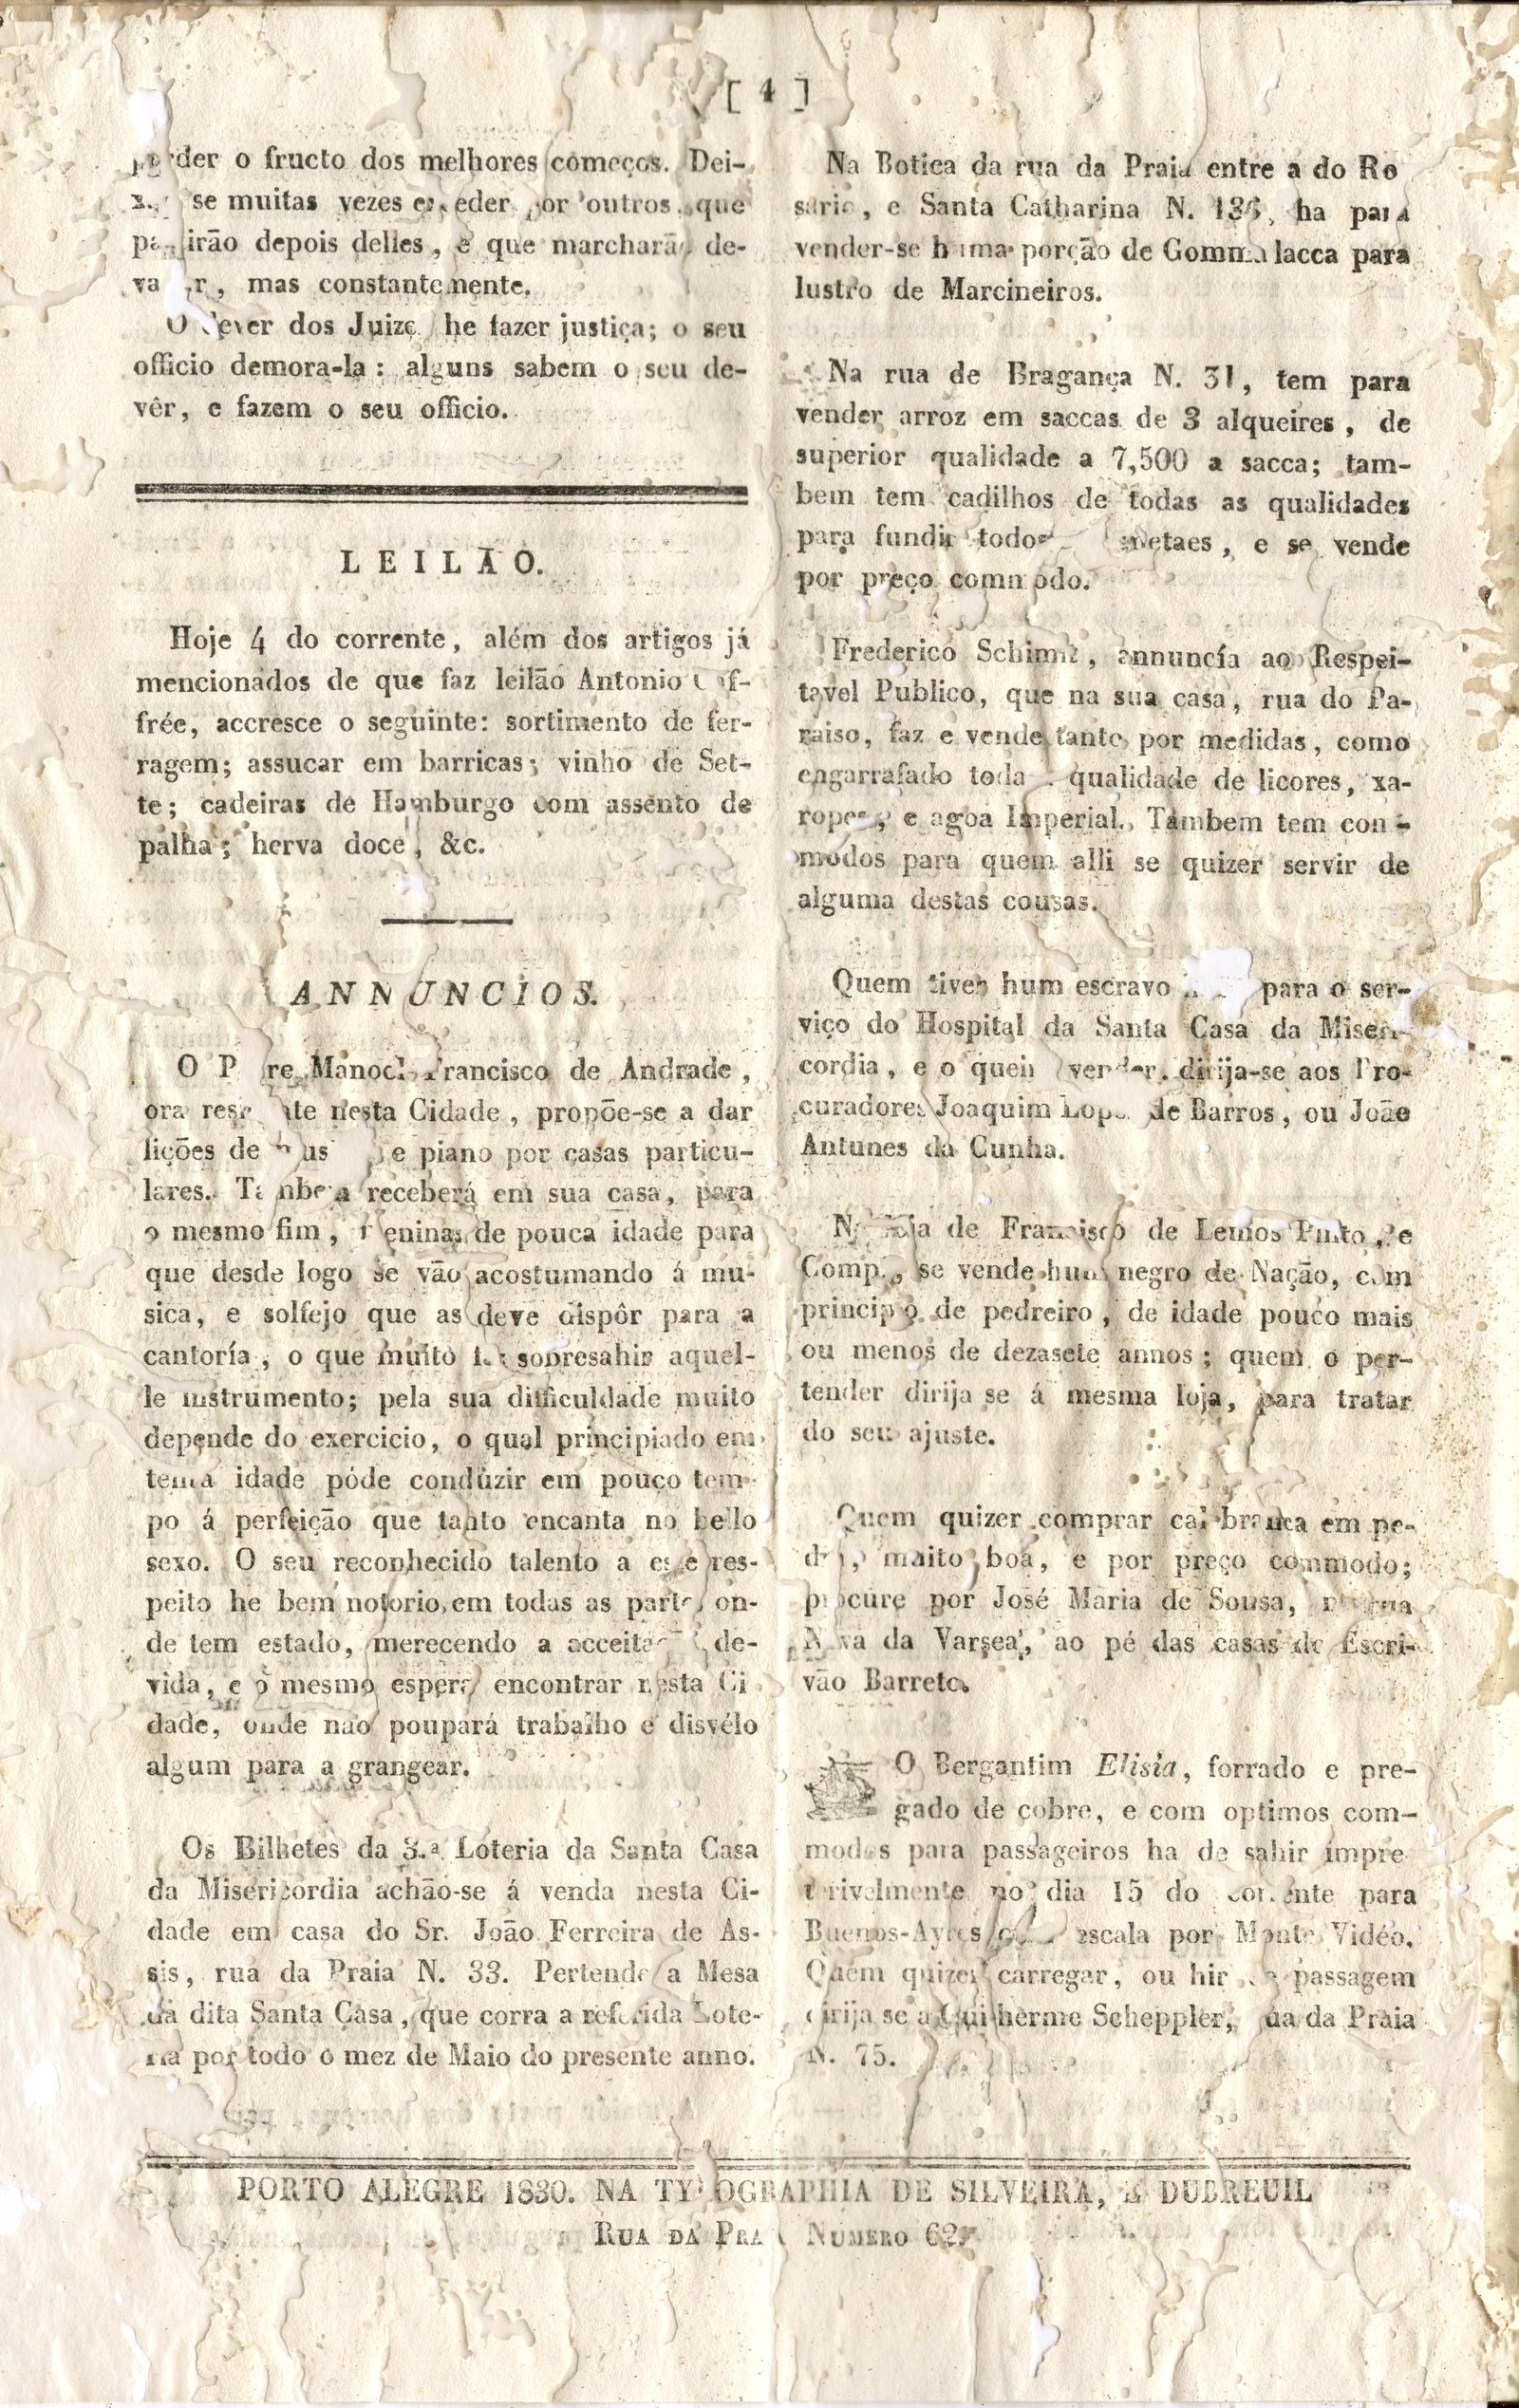 [ 4 ]
perder o fructo dos melhores começos. Dei-
se muitas vezes exceder por outros, que
partirão depois delles, e que marcharão de-
vagar, mas constantemente.
O dever dos Juizes he fazer justiça; o seu
officio demora-la: alguns sabem o seu de-
vêr, e fazem o seu officio.
LEILÃO.
Hoje 4 do corrente, além dos artigos já
mencionados de que faz leilão Antonio
frée, accresce o seguinte: sortimento de fer-
ragem; assucar em barricas; vinho de Set-
te; cadeiras de Hamburgo com assento de
palha; herva doce, &c.
ANNUNCIOS.
O Padre Manoel Francisco de Andrade,
ora residente nesta Cidade, propõe-se a dar
lições de musica e piano por casas particu-
lares. Tambem receberá em sua casa, para
o mesmo fim, meninas de pouca idade para
que desde logo se vão acostumando á mu-
sica, e solfejo que as deve dispôr para a
cantoría, o que muito faz sobresahir aquel-
le instrumento; pela sua difficuldade muito
depende do exercicio, o qual principiado em
tenra idade póde condúzir em pouco tem-
po á perfeição que tanto encanta no bello
sexo. O seu reconhecido talento a esse res-
peito he bem notorio em todas as partes on-
de tem estado, merecendo a acceitação de-
vida, e o mesmo espera encontrar nesta Ci
dade, onde nao poupará trabalho e disvélo
algum para a grangear.
Os Bilhetes da 3.ª Loteria da Santa Casa
da Misericordia achão-se á venda nesta Ci-
dade em casa do Sr. João Ferreira de As-
sis, rua da Praia N. 33. Pertende a Mesa
da dita Santa Casa, que corra a referida Lote-
ria por todo o mez de Maio do presente anno.
Na Botica da rua da Praia entre a do Ro
sario, e Santa Catharina N. 136, ha para
vender-se huma porção de Gomma lacca para
lustro de Marcineiros.
Na rua de Bragança N. 31, tem para
vender arroz em saccas de 3 alqueires, de
superior qualidade a 7,500 a sacca; tam-
bem tem cadilhos de todas as qualidades
para fundir todos metaes, e se vende
por preço commodo.
Frederico Schimit, annuncía ao Respei-
tavel Publico, que na sua casa, rua do Pa-
raiso, faz e vende tanto por medidas, como
engarrafado toda a qualidade de licores, xa-
ropes, e agoa Imperial. Tambem tem con-
modos para quem alli se quizer servir de
alguma destas cousas.
Quem tiver hum escravo para o ser-
viço do Hospital da Santa Casa da Miseri-
cordia, e o queira vender, dirija-se aos Pro-
curadores Joaquim Lopes de Barros, ou João
Antunes da Cunha.
Na loja de Francisco de Lemos Pinto, e
Comp., se vende hum negro de Nação, com
principio de pedreiro, de idade pouco mais
ou menos de dezasete annos; quem o per-
tender dirija se á mesma loja, para tratar
do seu ajuste.
Quem quizer comprar cal branca em pe-
dra, muito boa, e por preço commodo;
procure por José Maria de Sousa, na rua
Nova da Varsea, ao pé das casas do Escri-
vão Barreto.
O Bergantim Elisia, forrado e pre-
gado de cobre, e com optimos com-
modos para passageiros ha de sahir impre
terivelmente no dia 15 do corrente para
Buenos-Ayres com escala por Monte Vidéo.
Quem quizer carregar, ou hir de passagem
dirija se a Guilherme Scheppler, rua da Praia
N. 75.
PORTO ALEGRE 1830. NA TYPOGRAPHIA DE SILVEIRA, E DUBREUIL
RUA DA PRAIA NUMERO 62.